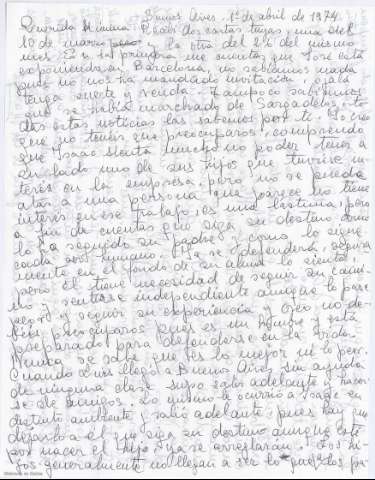 Buenos Aires. 1º de abril de 1974
Querida Mimina: Recibí dos cartas tuyas, una del
10 de marzo y la otra del 24 del mismo
mes. En la primera me cuentas que José está
exponiendo en Barcelona, no sabíamos nada
pues no nos ha mandado invitación, ojalá
tenga suerte y venda. Tampoco sabíamos
que se había marchado de Sargadelos, to
das estas noticias las sabemos por ti. Yo creo
que no tenéis que preocuparos, comprendo
que Isaac sienta mucho no poder tener a
su lado uno de sus hijos que tuviese in
terés en la empresa, pero no se puede
atar a una persona que parece no tiene
interés en ese trabajo, es una lástima, pero
a fin de cuentas que siga su destino como
lo ha seguido su padre y como lo sigue
cada ser humano. Ya se defenderá, segura
mente en el fondo de su alma lo siente,
pero él tiene necesidad de seguir su cami
no, sentirse independiente aunque lo
y seguir su experiencia y creo no de
béis preocuparos pues es un hombre y está
preparado para defenderse en la vida.
Nunca se sabe que es lo mejor ni lo peor.
Cuando Luis llegó a Buenos Aires sin ayuda
de ninguna clase supo salir adelante y hacer
se de amigos. Lo mismo le ocurrió a Isaac en
distinto ambiente y salió adelante, pues hay que
dejarlo a él que siga su destino aunque esté
por nacer el hijo, ya se arreglarán. Los hi
jos generalmente no llegan a ser lo que los pa-